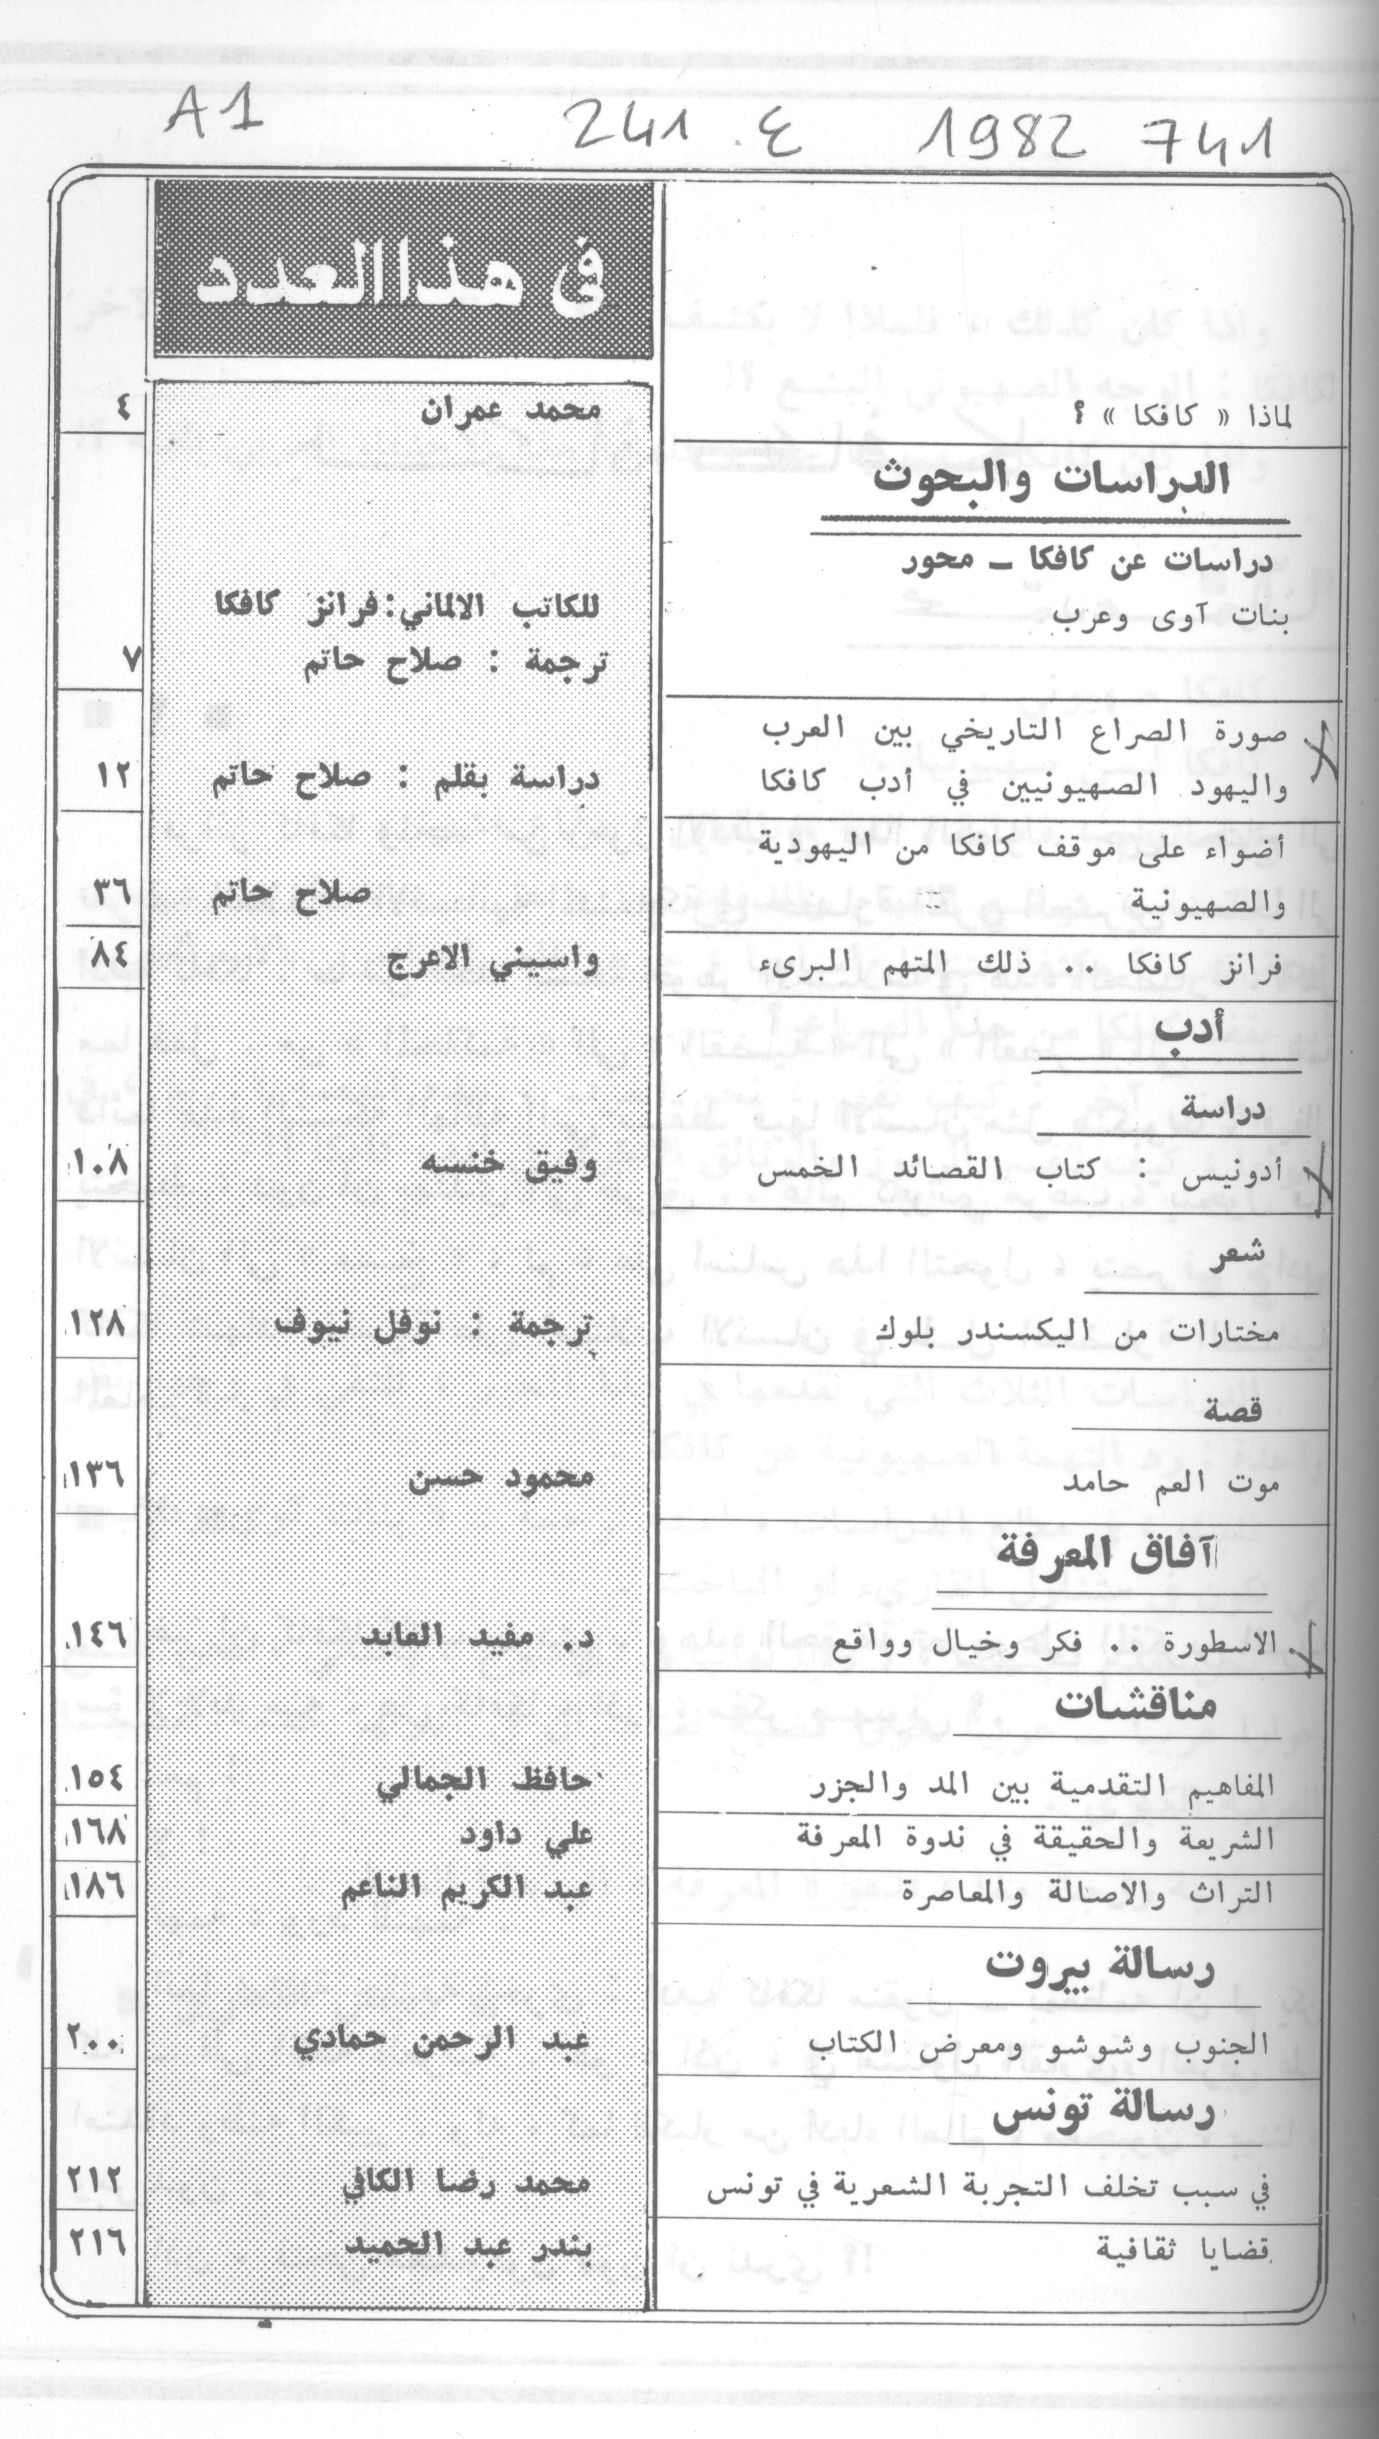 A1 241 ع. 1982 741
في هذا العدد
لماذا « كافكا » ؟ محمد عمران ٤
الدراسات والبحوث
دراسات عن كافكا ــ محور
بنات آوى وعرب للكاتب الالماني: فرانز كافكا
ترجمة : صلاح حاتم ٧
صورة الصراع التاريخي بين العرب
واليهود الصهيونيين في أدب كافكا دراسة بقلم : صلاح حاتم ١٢
أضواء على موقف كافكا من اليهودية
والصهيونية صلاح حاتم ٣٦
فرانز كافكا .. ذلك المتهم البرىء واسيني الاعرج ٨٤
أدب
دراسة
أدونيس : كتاب القصائد الخمس وفيق خنسه ١٠٨
شعر
مختارات من اليكسندر بلوك ترجمة : نوفل نيوف ١٢٨
قصة
موت العم حامد محمود حسن ١٣٦
آفاق المعرفة
الاسطورة .. فكر وخيال وواقع د. مفيد العابد ١٤٦
مناقشات
المفاهيم التقدمية بين المد والجزر حافظ الجمالي ١٥٤
الشريعة والحقيقة في ندوة المعرفة علي داود ١٦٨
التراث والاصالة والمعاصرة عبد الكريم الناعم ١٨٦
رسالة بيروت
الجنوب وشوشو ومعرض الكتاب عبد الرحمن حمادي ٢٠٠
رسالة تونس
في سبب تخلف التجربة الشعرية في تونس محمد رضا الكافي ٢١٢
قضايا ثقافية بندر عبد الحميد ٢١٦